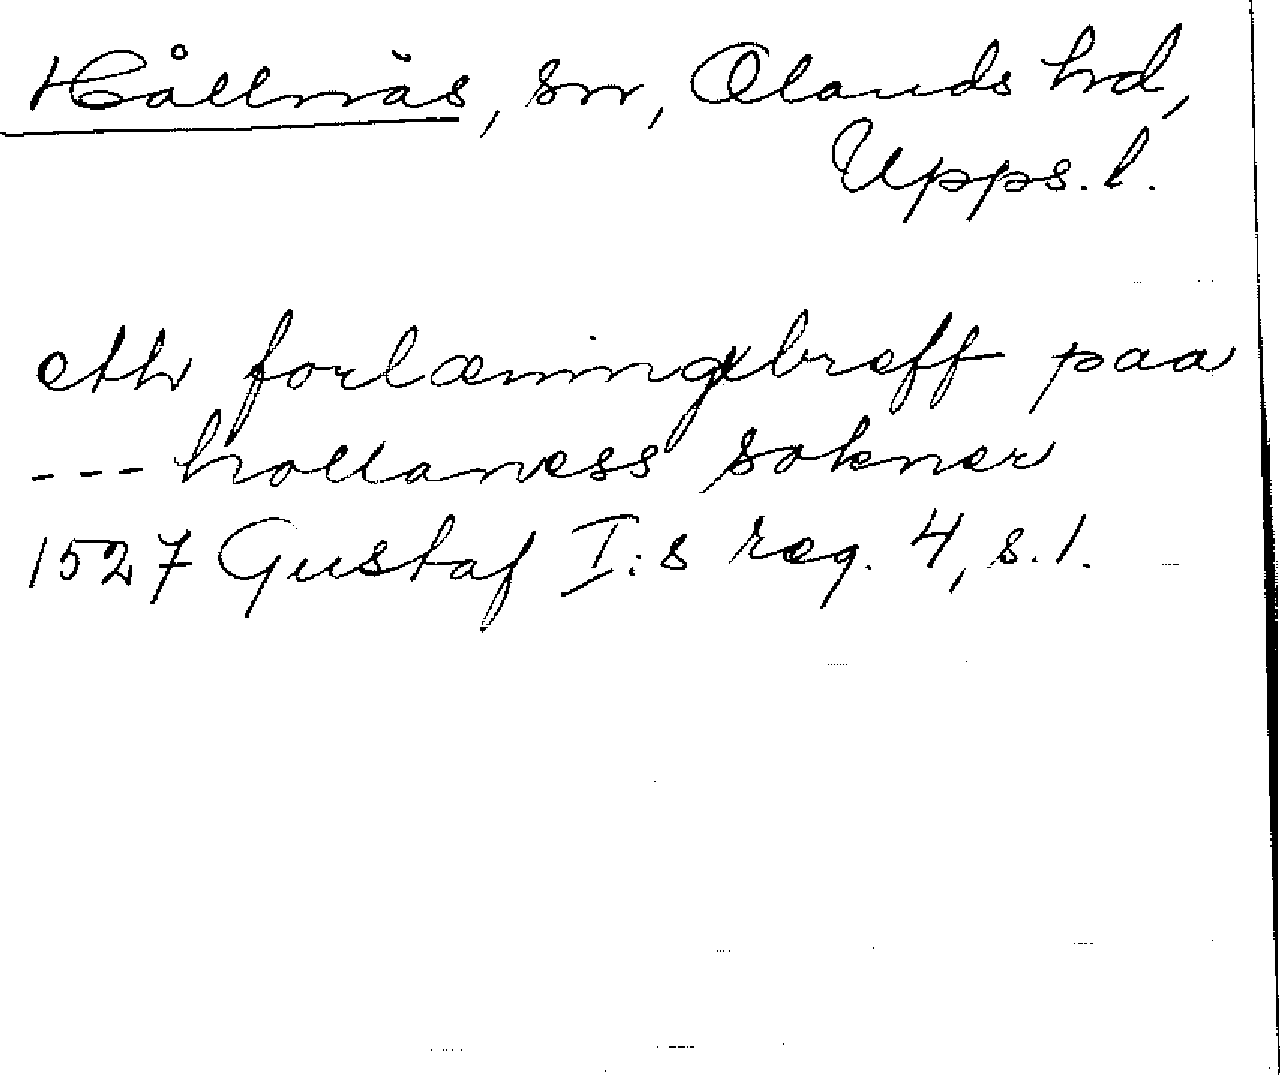 Hållnäs, sn, Olands hd,
Upps. l.
eth forlæningxbreff paa
--- hollaness sokner
1527 Gustaf I:s reg. 4, s. 1.